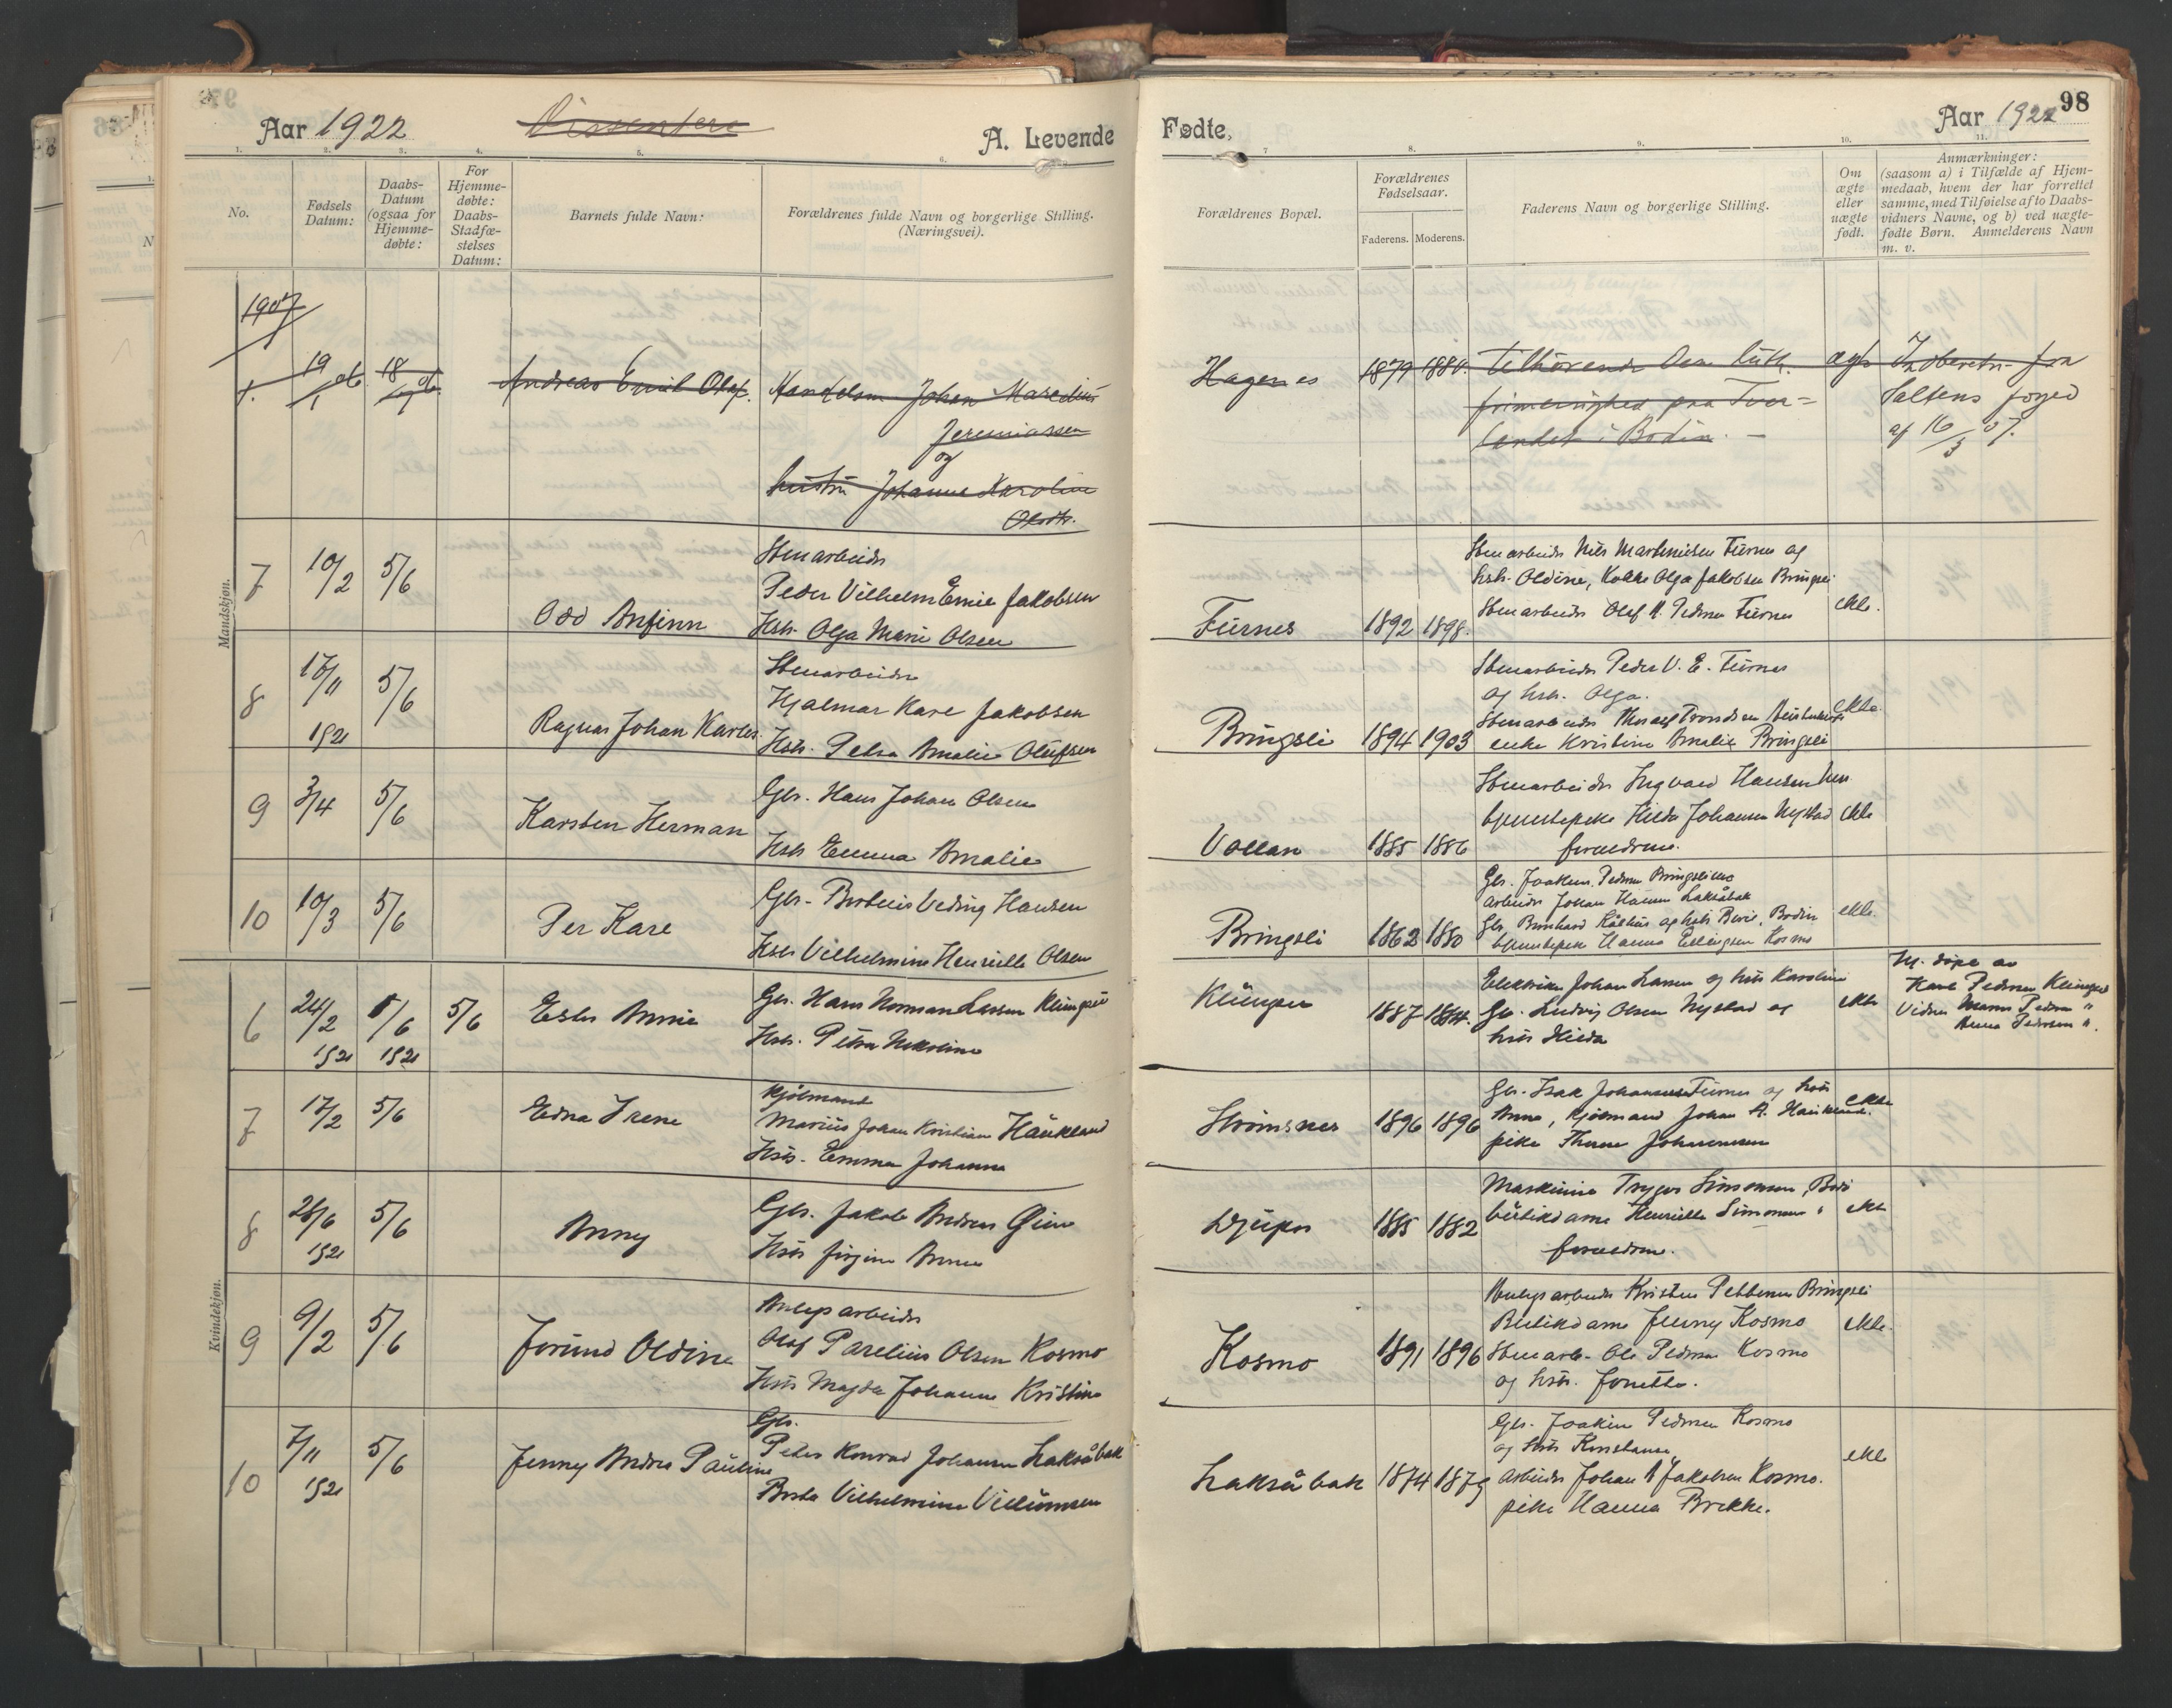 Aar 1922
Dissentere
A. Levende
Fødte.
Aar 1922
98
1. 2. 3. 4. 5. 6.
7 8. 9. 10. 11.
No.
Fødsels
Datum:
Daabs-
Datum
(ogsaa for
Hjemme-
døbte:
For
Hjemme-
døbte:
Daabs-
Stadfæ-
stelses
Datum:
Barnets fulde Navn:
Forældrenes fulde Navn og borgerlige Stilling.
(Næringsvei).
Forældrenes Bopæl.
Forældrenes
Fødselsaar.
Faderens. Moderens.
Faderens Navn og borgerlige Stilling.
Om
ægte
eller
uægte
født.
Anmærkninger:
(saasom a) i Tilfælde af Hjem-
medaab, hvem der har forrettet
samme, med Tilføielse af to Daabs-
vidners Navne, og b) ved uægte-
fødte Børn. Anmelderens Navn
m. v.
1907
1. 19/1 06 18/ Andreas Emil Olaf. Handelsm Johan Maredius
Jeremiassen
og
hustru Johanne Karoline
Olsdtr.
Hagenes 1879 1880. Tilhørende Den luth.
frimenighed paa Tver-
landet i Bodin. -
ægte
Indberetn. fra
Saltens foged
af 16/3 07.
Mandskjøn.
7 10/2 5/6 Odd Anfinn
Stenarbeider
Peder Vilhelm Emil Jakobsen
Hstr. Olga Marie Olsen
Furnes 1892 1898.
Stenarbeider Nils Marteniusen Furnes og
hstr. Oldine, Kokke Olga Jakobsen Bringsli
Stenarbeider Olaf M. Pedersen Furnes
ekte.
8 17/11 1921 5/6 Ragnar Johan Karles
Stenarbeider
Hjalmar Kare Jakobsen
Hstr. Petra Amalie Olufsen
Bringsli 1894 1903
Stenarbeider Peder V. E. Furnes
og hstr. Olga.
Stenarbeider Trondsen
enke Kristine Amalie Bringsli
ekte.
9 3/4 5/6 Karsten Herman
Gbr. Hans Johan Olsen
Hstr Emma Amalie
Vollan 1885 1886
Stenarbeider Ingvard Hansen
tjenestepike Hilda Johansen Nystad
foreldrene.
ekte
10 10/3 5/6 Per Kare
Gbr. Berteus Veding Hansen
Hstr Vilhelmine Henriette Olsen
Bringsli 1862 1880
Gbr. Joakim Pedersen Bringslimo
Arbeider Johan Hansen Laksåbak
Gbr. Bernhard og hstr Berit, Bodin
tjenestepike Hanna Ellingsen Kosmo
ekte.
Kvindekjøn.
6 24/2 1921 1/6 1921 5/6 Ester Annie
Gbr. Hans Norman Larsen Klungset
Hstr. Petra Nekoline
Klungset 1887 1884.
Elektriker Johan Larsen og hstr Karoline
Gbr. Ludvig Olsen Nystad og
hstr Hilda
ekte
Hj. døpt av
Karl Pedersen Klungset
Vidner Pedersen "
Anna Pedersen ".
7 17/2 5/6 Edna Irene
Kjølmand
Marius Johan Kristian Haukland
Hstr. Emma Johanna
Strømsnes 1896 1896
Gbr. Isak Johannesen Furnes og hstr
Anna, Kjølmand Johan A. Haukland.
pike Johannesen
ekte
8 28/6 1921 5/6 Anny
Gbr. Jakob Andreas Gien
Hstr Jørgine Anna
Djupos 1885 1882
Maskinist Trygve Simonsen, Bodø
butikdame Henriette Simonsen "
foreldrene.
ekte
9 9/2 5/6 Jorund Oldine
Anlegsarbeider
Olaf Parelius Olsen Kosmo
Hstr Magda Johanna Kristine
Kosmo 1891 1896
Anlegsarbeider Kristen Pettersen Bringsli
Butikdame Jenny Kosmo
Stenarb. Ole Pedersen Kosmo
og hstr. Jonetta.
ekte.
10 7/11 1921 5/6 Jenny Andrea Pauline
Gbr.
Peter Konrad Johansen Laksåbak
Berta Vilhelmine Villumsen
Laksåbak 1874 1879
Gbr. Joakim Pedersen Kosmo
og hstr Konstanse
Arbeider Johan A Jakobsen Kosmo.
pike Hanna Brekke.
ekte